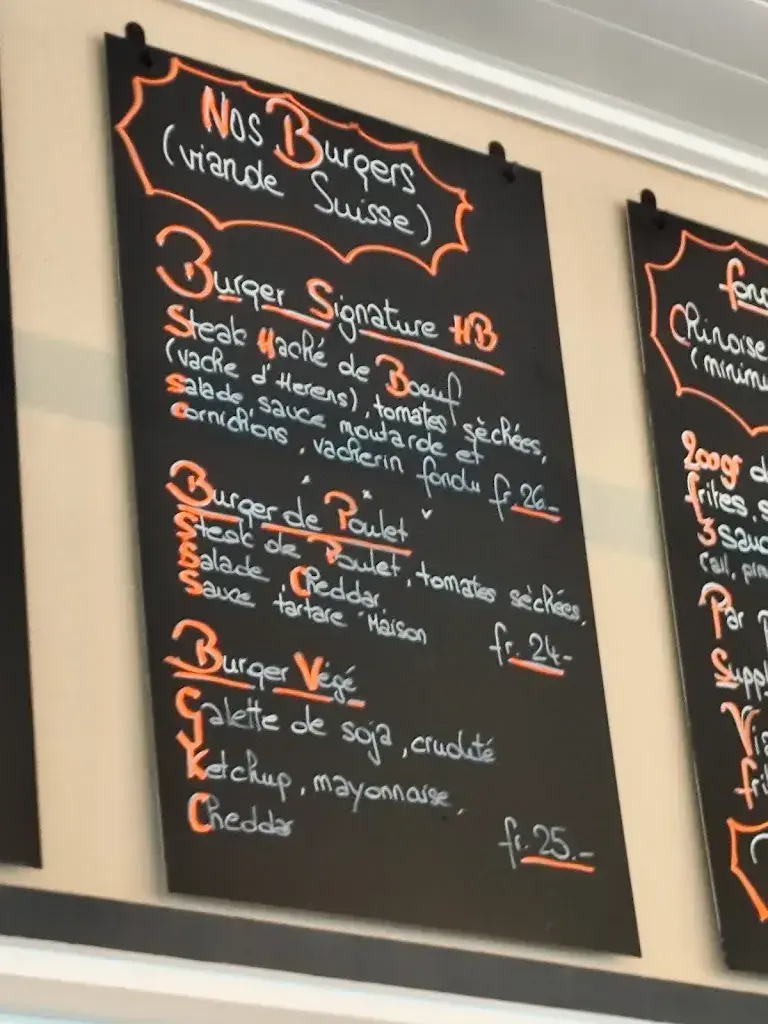 Nos Burgers
(viande Suisse)
Burger Signature HB
Steak Haché de Boeuf
(vache d'Herens), tomates sèchées,
salade, sauce moutarde et
cornichons, vacherin fondu fr. 26.-
Burger de Poulet
Steak de Poulet, tomates sèchées,
Salade, Cheddar,
Sauce tartare Maison
fr. 24-
Burger Végé
Galette de soja, crudité
Ketchup, mayonnaise,
Cheddar
fr. 25.-
Chinoise
200gr
frites,
3
Par